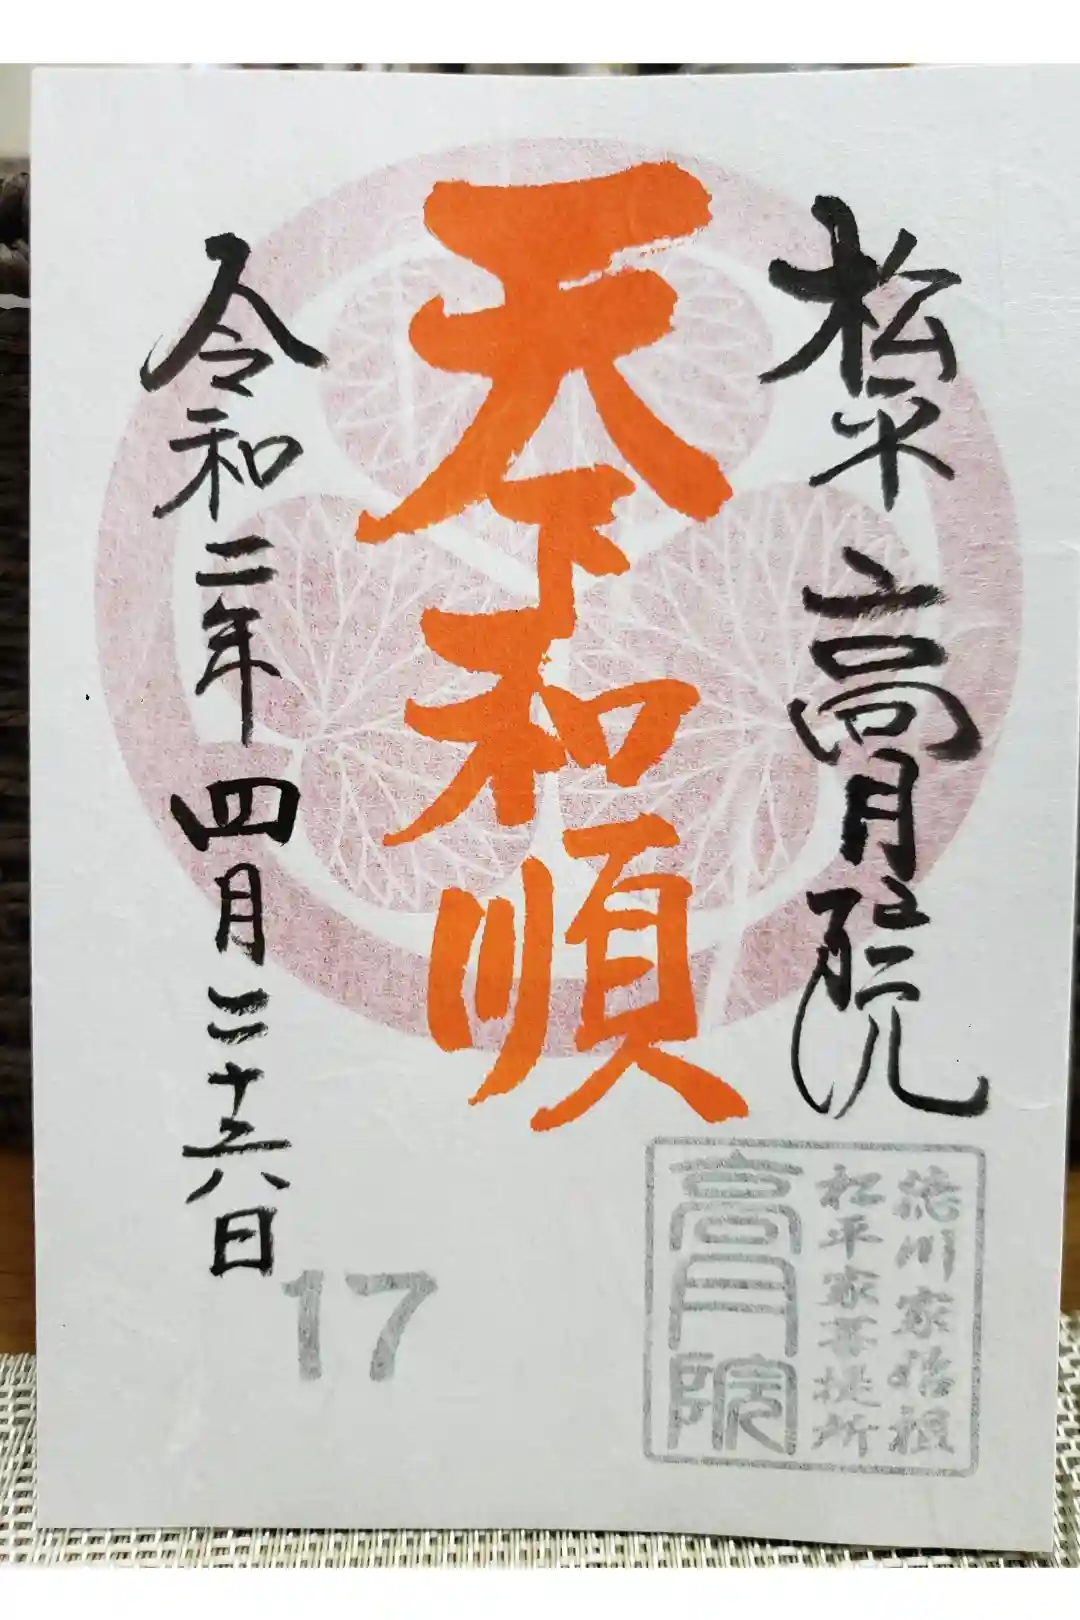 松平 高月院
天下和順
令和二年四月二十六日
17
徳川家始祖
松平家菩提所
高月院